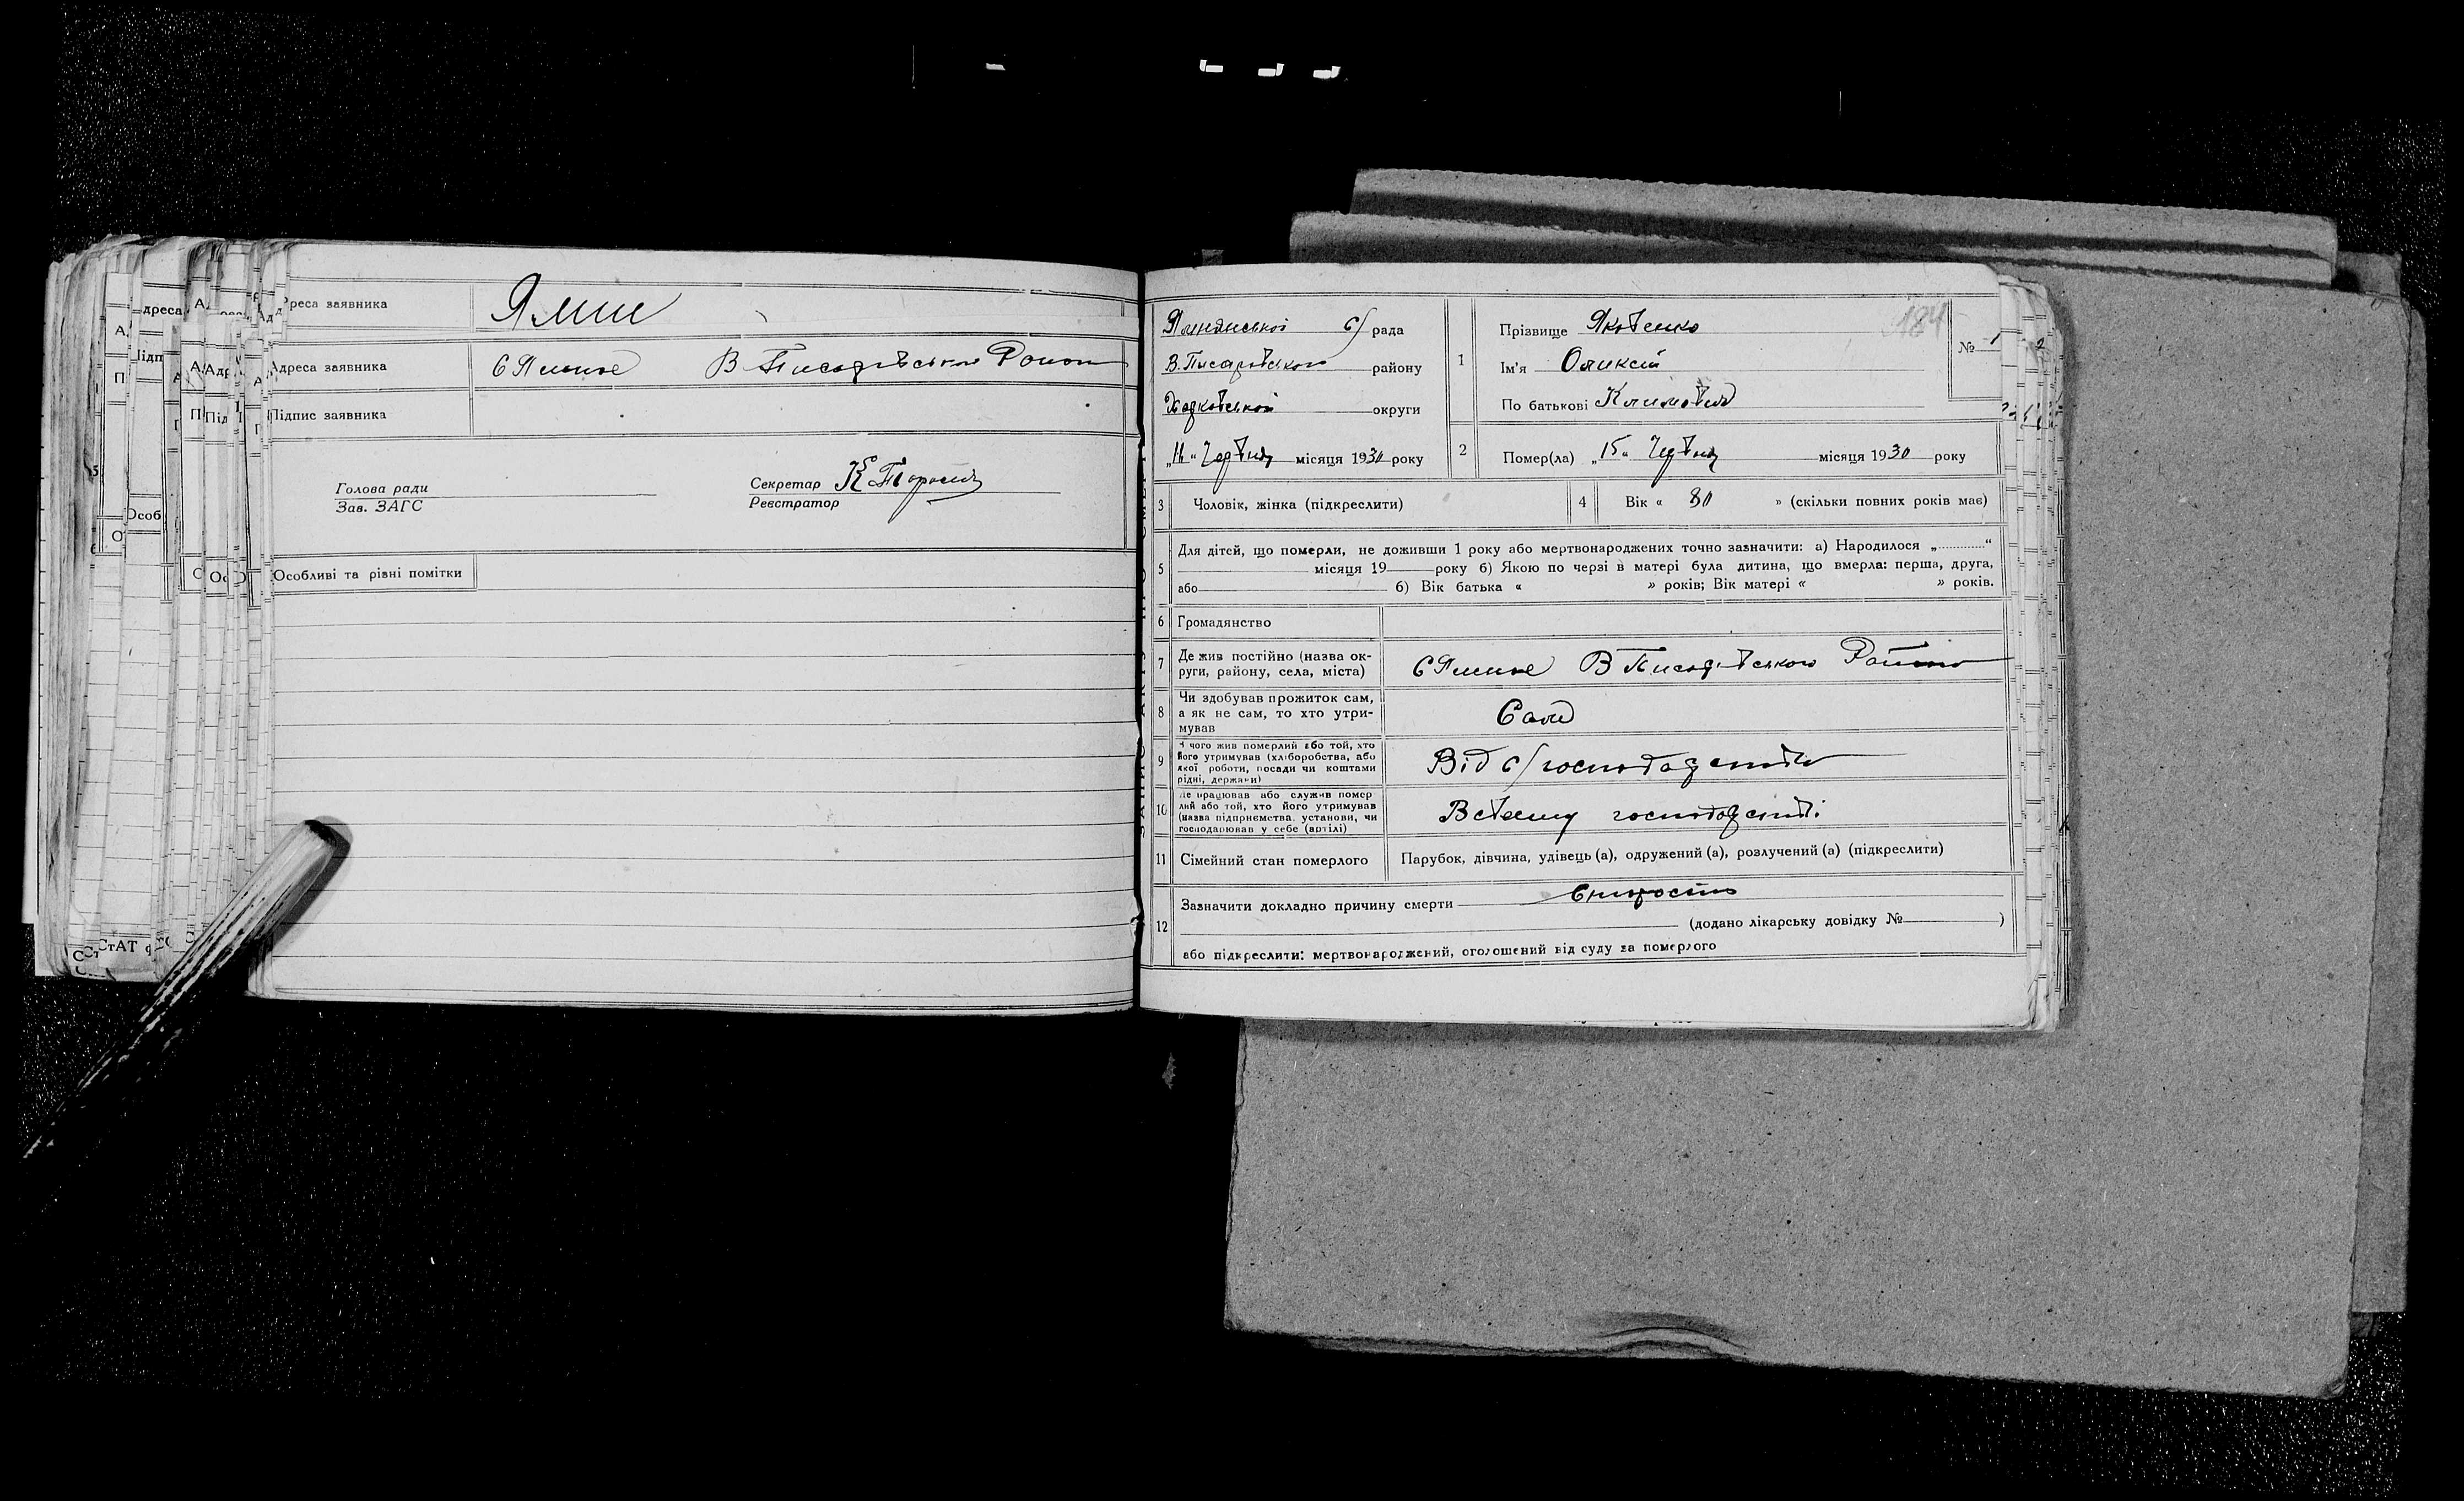 Адреса заявника Ямне
Адреса заявника с Ямне В Писарівського Району
Підпис заявника
Голова ради
Зав. ЗАГС
Секретар
Реєстратор
Особливі та різні помітки
184
Ямнянської с/ рада
В. Писарівського району
Харківської округи
„16“ Червня місяця 1930 року
1
Прізвище Яковенко
Ім'я Олексій
По батькові Климович
№ 1
2
Помер(ла) „15“ Червня місяця 1930 року
3 Чоловік, жінка (підкреслити)
4 Вік « 80 » (скільки повних років має)
5 Для дітей, що померли, не доживши 1 року або мертвонароджених точно зазначити: а) Народилося „ “
місяця 19 року б) Якою по черзі в матері була дитина, що вмерла: перша, друга,
або б) Вік батька « » років; Вік матері « » років.
6 Громадянство
7 Де жив постійно (назва ок-
руги, району, села, міста)
с Ямне В Писарівського Району
8 Чи здобував прожиток сам,
а як не сам, то хто утри-
мував
Сам
9 З чого жив померлий або той, хто
його утримував (хліборобства, або
якої роботи, посади чи коштами
рідні, держави)
Від с/господарства
10 Де працював або служив помер
лий або той, хто його утримував
(назва підприємства, установи, чи
господарював у себе (артілі)
В своєму господарстві
11 Сімейний стан померлого
Парубок, дівчина, удівець (а), одружений (а), розлучений (а) (підкреслити)
12 Зазначити докладно причину смерти
(додано лікарську довідку № )
або підкреслити: мертвонароджений, оголошений від суду за померлого